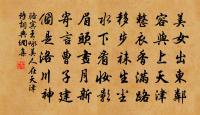 美女出東鄰
容與上天津
整衣香滿路
移步襪生塵
水下看妝影
眉頭畫月新
寄言曹子建
個是洛川神
駱賓王詠美人在天津
詩詞典網書